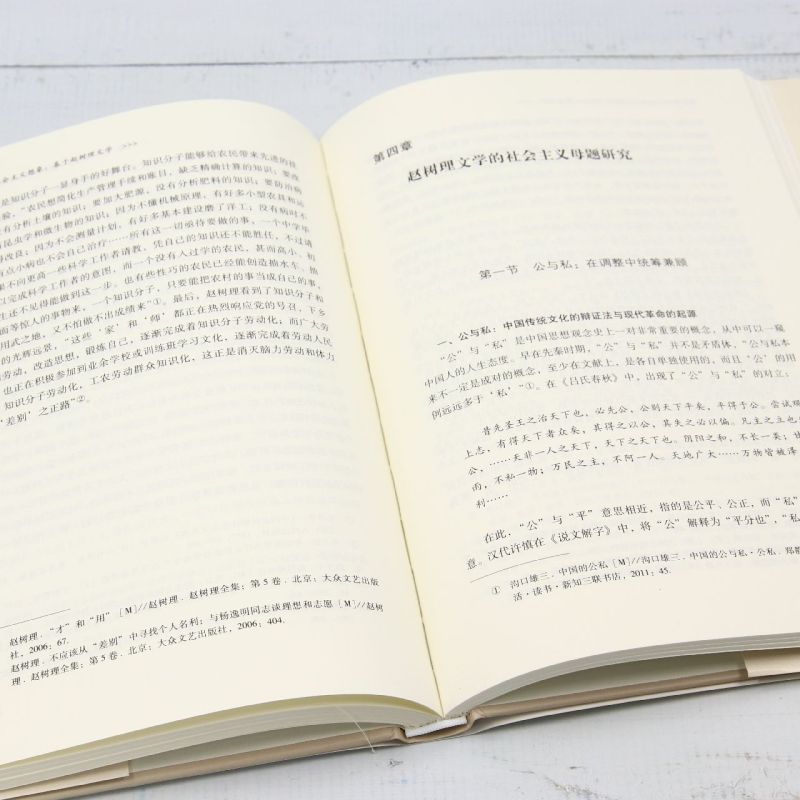 会主义想象：基于赵树理文学 >>>
是知识分子一显身手的好舞台。知识分子能够给农民带来先进的技
验，“农民想简化生产管理手续和账目，缺乏精确计算的知识；要改
有分析土壤的知识；要加大肥源，没有分析肥料的知识；要防治病
昆虫学和微生物的知识；因为不懂机械原理，有好多小型农具和运
得改良；因为不会测量计划，有好多基本建设磨了洋工；没有病时不
有点小病也不会自己治疗……所有这一切亟待要做的事，一个中学毕
果不向更高一些科学工作者请教，凭自己的知识还不能胜任，不过请
以完成科学工作者的意图，而一个没有人过学的农民，甚而高小、初
生还不见得能做到这一步。也有些性巧的农民已经能创造抽水车、抽
面等惊人的事物来，一个知识分子，只要能把农村的事当成自己的事，
用武之地，又不怕做不出成绩来”①。最后，赵树理看到了知识分子和
的光辉远景，“这些‘家’和‘师’都正在热烈响应党的号召，下乡
劳动，改造思想，锻炼自己，逐渐完成着知识分子劳动化；而广大劳
也正在积极参加到业余学校或训练班学习文化，逐渐完成着劳动人民
知识分子劳动化，工农劳动群众知识化，这正是消灭脑力劳动和体力
‘差别’之正路”②。
赵树理．“才”和“用”．[M]//赵树理．赵树理全集：第5卷．北京：大众文艺出版
社，2006：67．
赵树理．不应该从“差别”中寻找个人名利；与杨逸明同志谈理想和志愿［M］//赵树
理．赵树理全集：第5卷．北京：大众文艺出版社，2006：404．
第四章
赵树理文学的社会主义母题研究
第一节 公与私：在调整中统筹兼顾
一、公与私：中国传统文化的辩证法与现代革命的起源
“公”与“私”是中国思想观念史上一对非常重要的概念，从中可以一窥
中国人的人生态度。早在先秦时期，“公”与“私”并不是矛盾体，“公与私本
来不一定是成对的概念，至少在文献上，是各自单独使用的，而且‘公’的用
例远远多于‘私’”①。在《吕氏春秋》中，出现了“公”与“私”的对立：
昔先圣王之治天下也，必先公，公则天下平矣，平得于公。尝试观
上志，有得天下者众矣，其得之以公，其失之必以偏。凡主之立也
公，……天非一人之天下，天下之天下也。阴阳之和，不长一类；甘
雨，不私一物；万民之主，不阿一人。天地广大……万物皆被泽
利……
在此，“公”与“平”意思相近，指的是公平、公正，而“私”
意。汉代许慎在《说文解字》中，将“公”解释为“平分也”，“私
① 沟口雄三．中国的公私［M］//沟口雄三．中国的公与私·公私．郑静
活·读书·新知三联书店，2011：45．